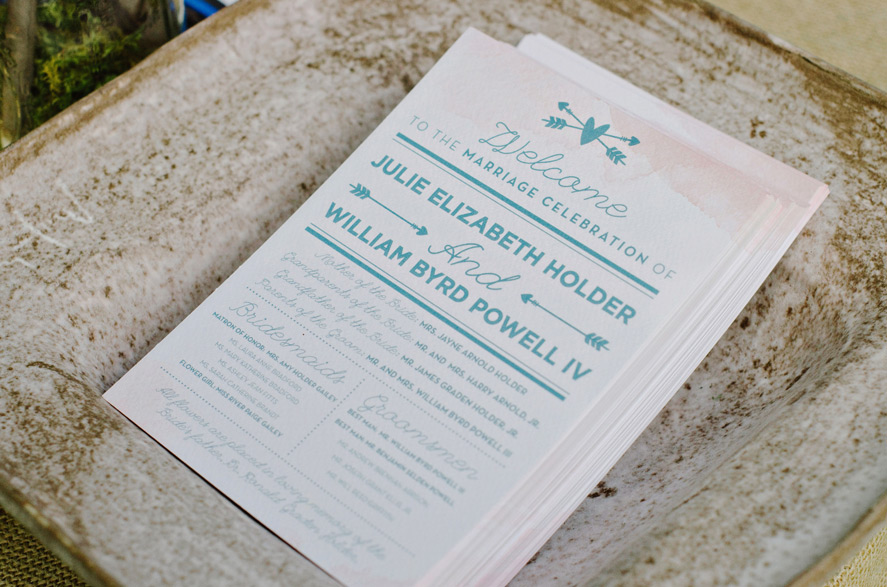 Welcome
TO THE MARRIAGE CELEBRATION OF
JULIE ELIZABETH HOLDER
And
WILLIAM BYRD POWELL IV
Mother of the Bride: MRS. JAYNE ARNOLD HOLDER
Grandparents of the Bride: MR. AND MRS. HARRY ARNOLD, JR.
Grandfather of the Bride: MR. JAMES GRADEN HOLDER, JR.
Parents of the Groom: MR. AND MRS. WILLIAM BYRD POWELL III
Bridesmaids
MATRON OF HONOR: MRS. AMY HOLDER GAILEY
MS. LAURA ANNE
MS. MARY KATHERINE
MS. ASHLEY
MS. SARAH CATHERINE
FLOWER GIRL: MISS RIVER PAIGE GAILEY
Groomsmen
BEST MAN: MR. WILLIAM BYRD POWELL III
BEST MAN: MR. BENJAMIN SELDEN POWELL
MR. ANDREW
MR. JOSEPH
MR. WILL
All flowers are placed in loving memory of the
Bride's father, Dr. Randall Graden Holder